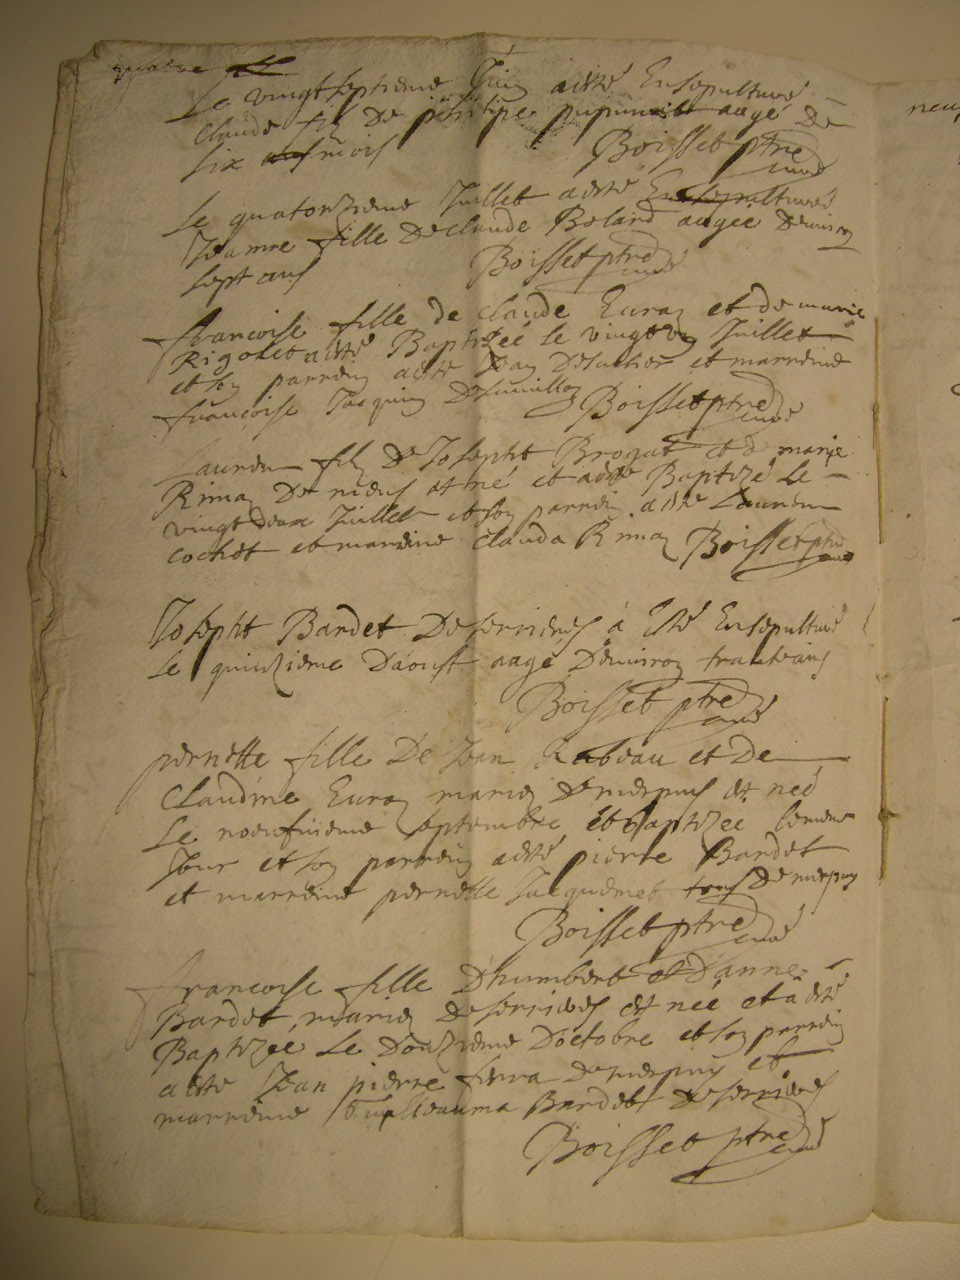 Le vingt septieme Juin a esté Ensepulturé
Claude filz De philipe pupunet aagé De
six mois Boisset ptre curé
Le quatorzieme Juillet a esté Ensepulturéé
Jeanne fille De Claude Bolard aagee Denviron
sept ans Boisset ptre curé
francoise fille de Claude Euraz et de marie
Rigolet a esté Baptizéé le vingt Juillet
et son parrein a esté Jean et marreine
francoise Jacquin Boisset ptre curé
Lauren filz De Josepht Brogat et de marie
Rimaz De est né et a esté Baptizé Le
vingt deux Juillet et son parrein a esté Lauren
Cochet et marreine Clauda Rimaz Boisset ptre curé
Josepht Bardet De serrieres à Esté Ensepulturé
Le quinzieme Daoust aagé Denviron trante ans
Boisset ptre curé
pernette fille De Jean Rabeau et De
Claudine Euraz mariez De merpuis est néé
Le noeufuieme septembre et baptizee le mesme
Jour et son parrein a esté pierre Bardet
et marreine pernette Jacquemet tous De merpuis
Boisset ptre curé
francoise fille D'humbert et D'anne
Bardet mariez De serrieres est néé et à esté
Baptizéé Le Douzieme Doctobre et son parrein
a esté Jean pierre De merpuis et
marreine Guilleauma Bardet De serrieres
Boisset ptre curé